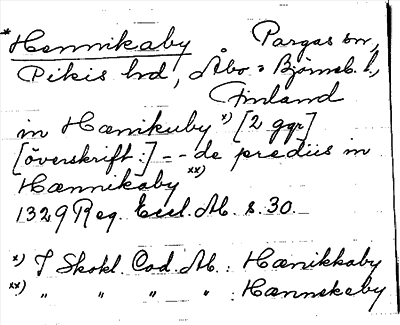 *Hennikaby Pargas sn,
Pikis hd, Åbo o Björneb. l,
Finland
in Hænikuby x) [2 ggr]
[överskrift:] = - de prediis in
Hænnikaby xx)
1329 Reg. Eccl. Ab. s. 30.
x) I Skokl. Cod. Ab.: Hænikkaby
xx) " " " " : Hænnekeby